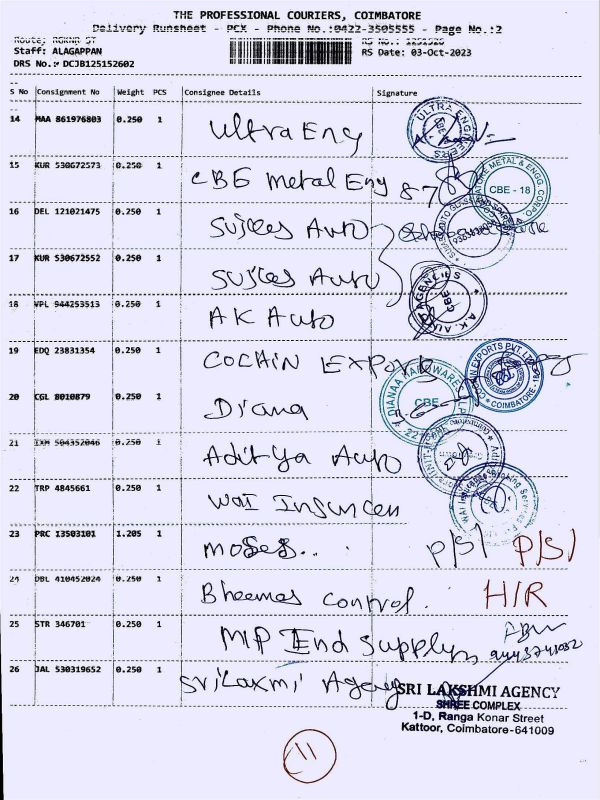 THE PROFESSIONAL COURIERS, COIMBATORE
Delivery Runsheet - PCX - Phone No.:0422-3505555 - Page No.:2
Staff: ALAGAPPAN
RS Date: 03-Oct-2023
DRS No.: DCJB125152602
S No Consignment No Weight PCS Consignee Details Signature
14 MAA 861976803 0.250 1 Ultra Eng
ULTRA ENGINEERS CBE
15 KUR 530672573 0.250 1 CBE Metal Eng 87
METAL & ENGG. CORPO CBE - 18
16 DEL 121021475 0.250 1 Auto
17 KUR 530672552 0.250 1 Auto
18 VPL 944253513 0.250 1 AK Auto
A.K. AU AGENCIES CBE
19 EDQ 23831354 0.250 1 COCHIN EXPORTS
EXPORTS PVT. LTD COIMBATORE - 18
20 CGL 8010879 0.250 1 Diana
DIANAA HARDWARE CBE
21 IXM 504352046 0.250 1 Aditya Auto
22 TRP 4845661 0.250 1 WAI
23 PRC 13503101 1.205 1 moses.. P/S/ P/S/
24 DBL 410452024 0.250 1 Bheemas control. H/R
25 STR 346701 0.250 1 MP End Supplys
26 JAL 530319652 0.250 1 Sri Laxmi Agency
SRI LAKSHMI AGENCY
SHREE COMPLEX
1-D, Ranga Konar Street
Kattoor, Coimbatore-641009
11